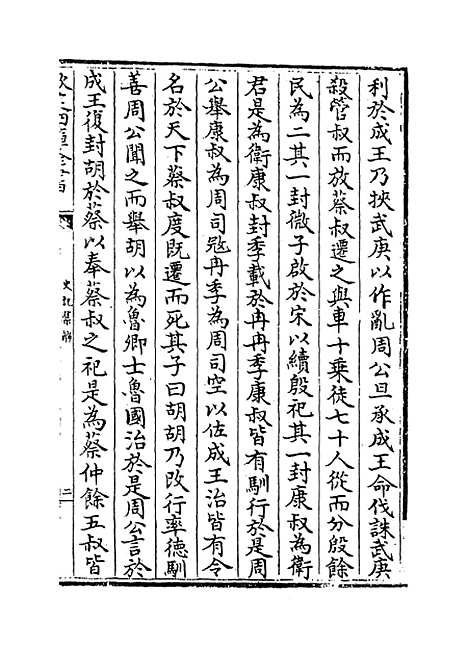 利於成王乃挾武庚以作亂周公旦承成王命伐誅武庚
殺管叔而放蔡叔遷之與車十乘徒七十人從而分殷餘
民為二其一封微子啟於宋以續殷祀其一封康叔為衛
君是為衛康叔封季載於冉冉季康叔皆有馴行於是周
公舉康叔為周司冦冉季為周司空以佐成王治皆有令
名於天下蔡叔度既遷而死其子曰胡胡乃改行率德馴
善周公聞之而舉胡以為魯卿士魯國治於是周公言於
成王復封胡於蔡以奉蔡叔之祀是為蔡仲餘五叔皆
史記集解
二